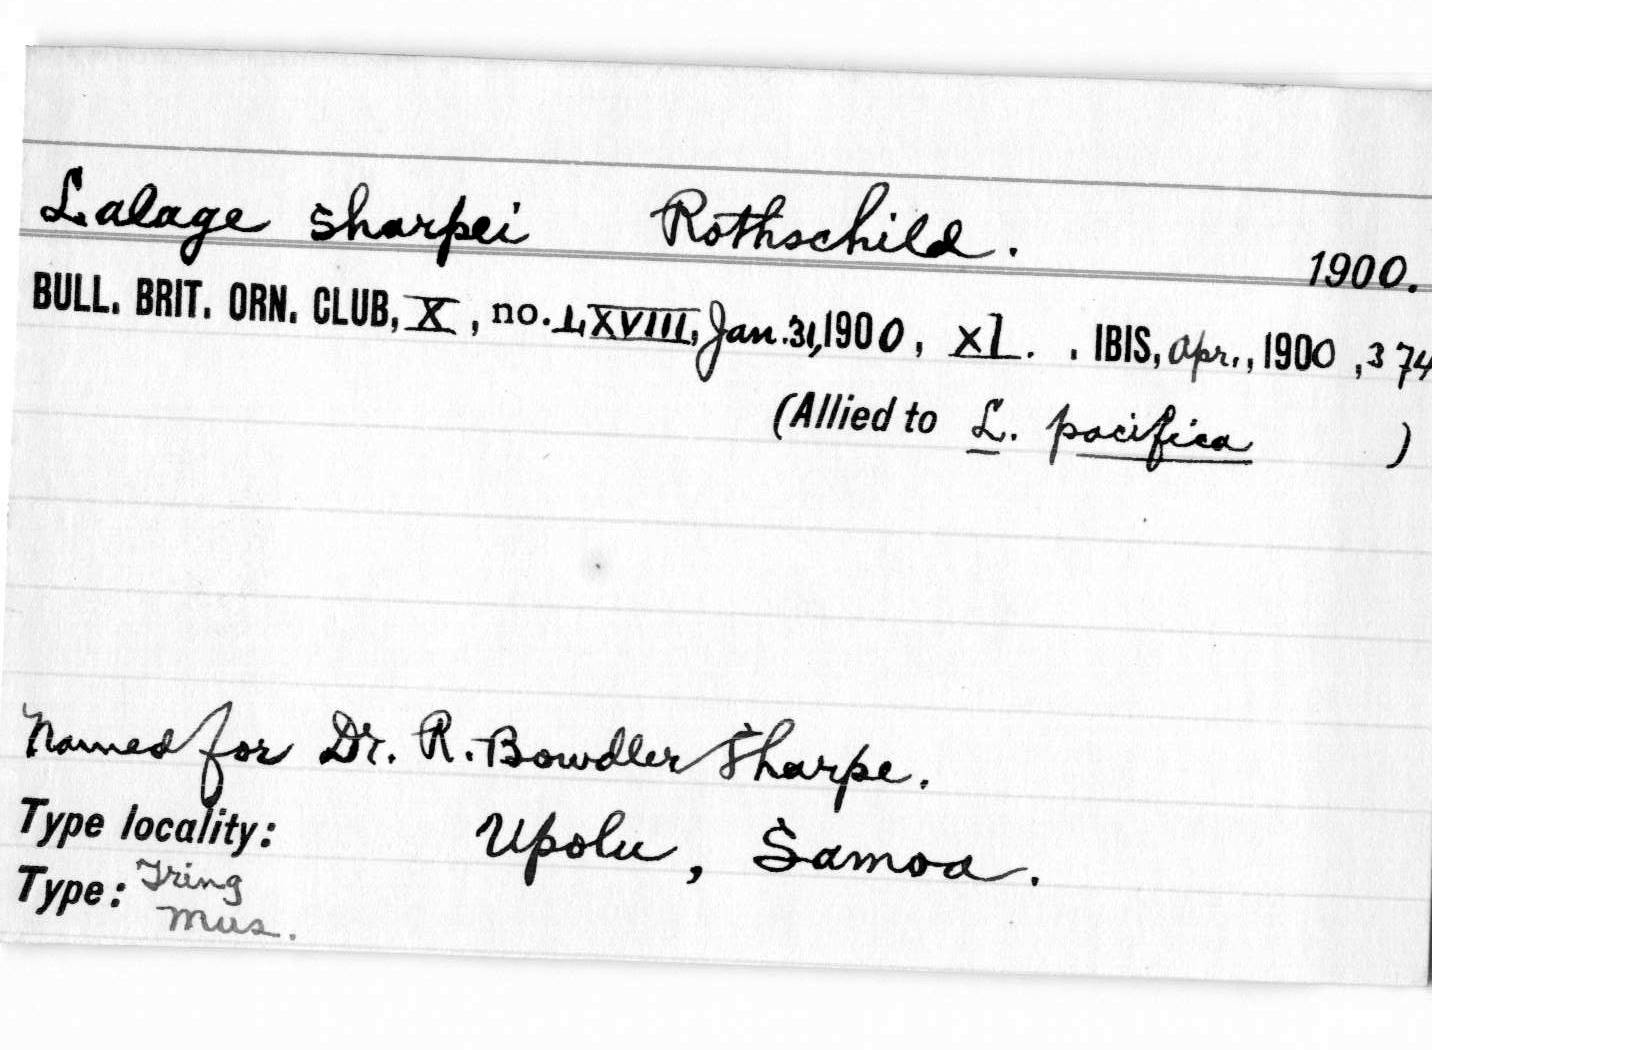 Lalage sharpei Rothschild. 1900.
BULL. BRIT. ORN. CLUB, X, no. LXVIII, Jan. 31, 1900, XL. . IBIS, Apr., 1900, 374
(Allied to L. pacifica )
Named for Dr. R. Bowdler Sharpe.
Type locality: Upolu, Samoa.
Type: Tring
Mus.